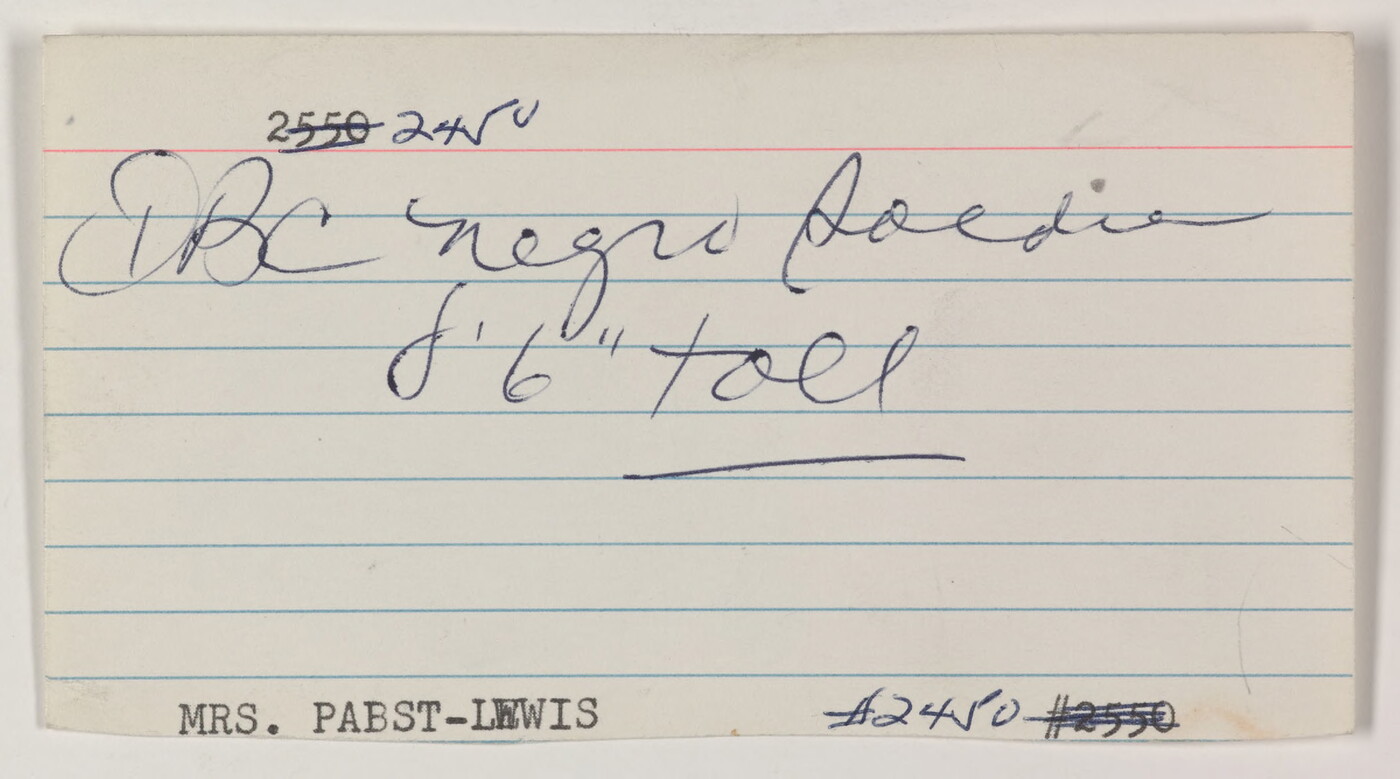 2550 2450
negro Soldier
8'6" tall
MRS. PABST-LEWIS #2450 #2550